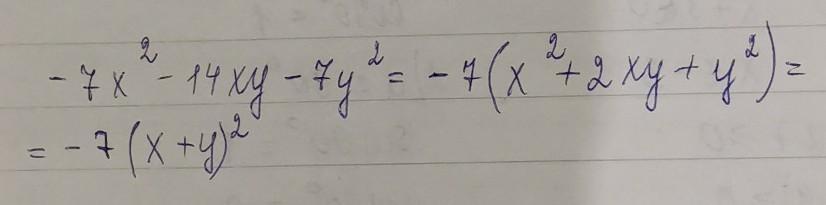 -7x² - 14xy - 7y² = -7(x² + 2xy + y²) =
= -7(x + y)²